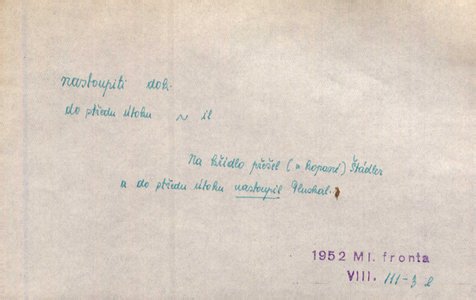 nastoupiti dok.
do středu útoku ~ il
Na křídlo přešel (v kopané) Štádler
a do středu útoku nastoupil Pluskal.
1952 Ml. fronta
VIII. III-3